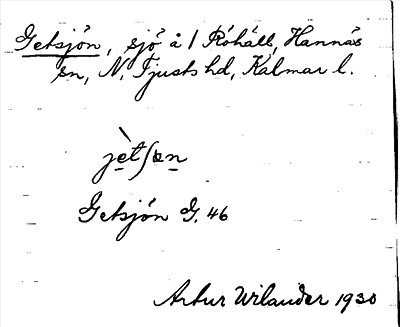 Getsjön, sjö å 1 Röhäll, Hannäs
sn, N. Tjusts hd, Kalmar l.
jèt∫ɵn
Getsjön G. 46
Artur Wilander 1930